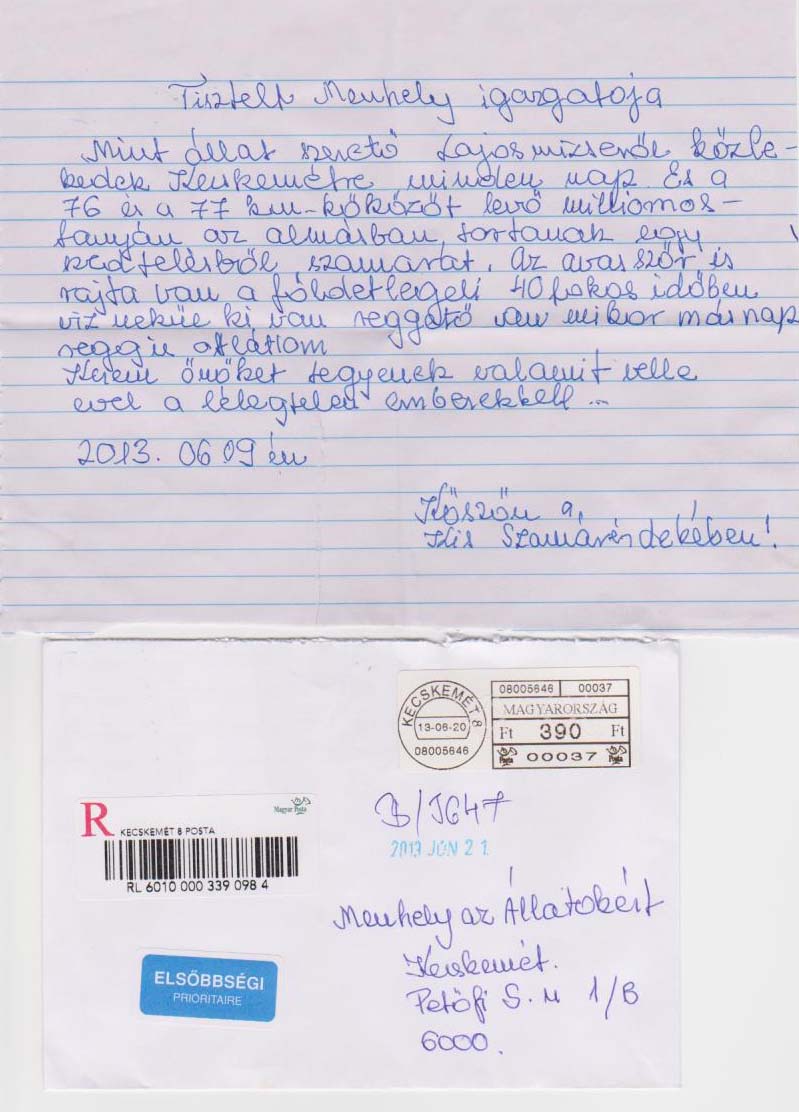 Tisztelt Menhely igazgatója
Mint állat szerető Lajosmizseről közle-
kedek Kecskemétre minden nap. És a
76 és a 77 km-kőközöt levő milliomos-
tanyán az almásban, tortanak egy
szamarat. Az avas szőr is
rajta van a földetlegeli 40 fokos időben
víz nekül ki van reggató van mikor másnap
reggi ottlátom
Kérem önöket tegyenek valamit velle
evel a lélegtelen emberekkell ...
2013. 06 09 én
Köszön a,
Kis Szamárérdekében!
KECSKEMÉT 8
13-06-20
08005646
08005646 00037
MAGYARORSZÁG
Ft 390 Ft
Posta 00037 Posta
R
Magyar Posta
KECSKEMÉT 8 POSTA
RL 6010 000 339 098 4
B/J647
2013 JÚN 21.
Menhely az Állatokért
Kecskemét.
Petőfi S. u 1/B
6000.
ELSŐBBSÉGI
PRIORITAIRE